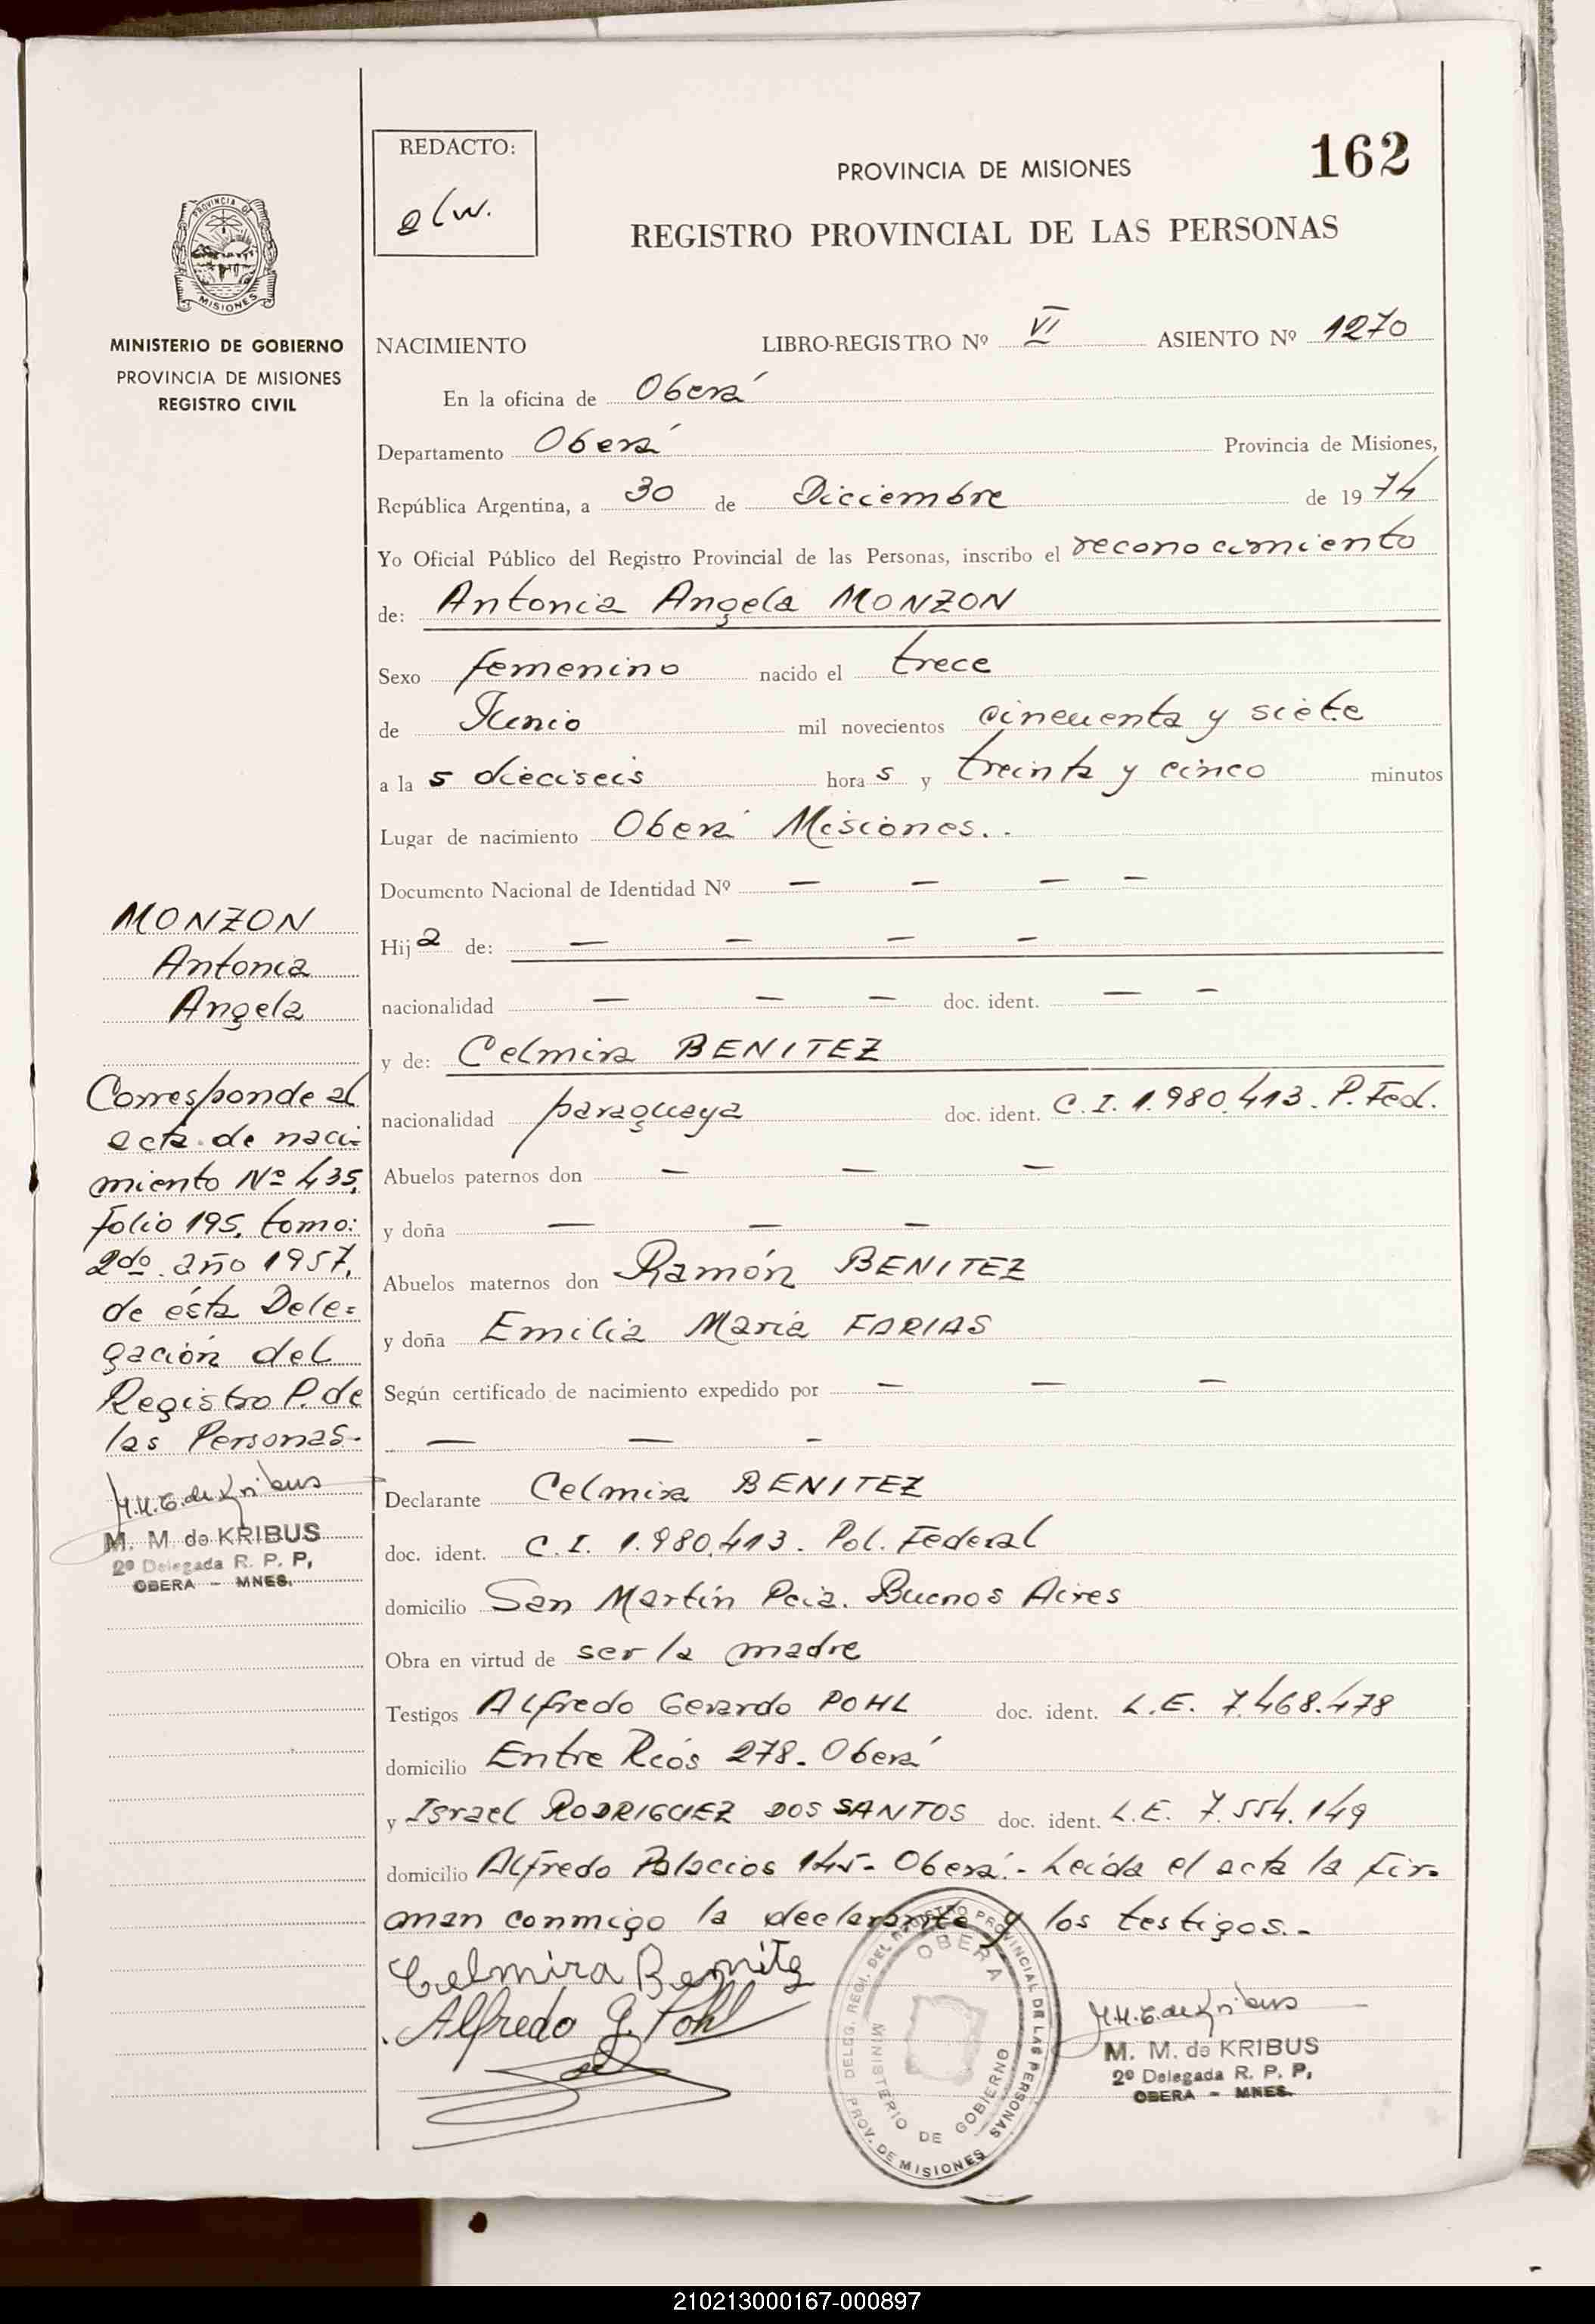 REDACTO:
PROVINCIA DE MISIONES
162
REGISTRO PROVINCIAL DE LAS PERSONAS
PROVINCIA DE
MISIONES
MINISTERIO DE GOBIERNO
PROVINCIA DE MISIONES
REGISTRO CIVIL
NACIMIENTO LIBRO-REGISTRO Nº VI ASIENTO Nº 1270
En la oficina de Oberá
Departamento Oberá Provincia de Misiones,
República Argentina, a 30 de Diciembre de 1974
Yo Oficial Público del Registro Provincial de las Personas, inscribo el reconocimiento
de: Antonia Angela MONZON
Sexo femenino nacido el trece
de Junio mil novecientos cincuenta y siete
a la s dieciseis hora s y treinta y cinco minutos
Lugar de nacimiento Oberá Misiones..
Documento Nacional de Identidad Nº — — — —
Hija de: — — — —
nacionalidad — — — doc. ident. — —
y de: Celmira BENITEZ
nacionalidad paraguaya doc. ident. C.I. 1.980.413. P. Fed.
Abuelos paternos don — — —
y doña — — —
Abuelos maternos don Ramón BENITEZ
y doña Emilia Maria FARIAS
Según certificado de nacimiento expedido por — — —
— — -
Declarante Celmira BENITEZ
doc. ident. C.I. 1.980.413. Pol. Federal
domicilio San Martín Pcia. Buenos Aires
Obra en virtud de ser la madre
Testigos Alfredo Gerardo POHL doc. ident. L.E. 7.468.478
domicilio Entre Ríos 278. Oberá
y Israel RODRIGUEZ DOS SANTOS doc. ident. L.E. 7.554.149
domicilio Alfredo Palacios 145- Oberá.- Leída el acta la fir=
man conmigo la declarante y los testigos.-
Celmira Benitez
Alfredo G. Pohl
M.M.G. de Kribus
M. M. de KRIBUS
2º Delegada R. P. P,
OBERA - MNES.
DELEG. REGI. DEL REGISTRO PROVINCIAL DE LAS PERSONAS
OBERA
MINISTERIO DE GOBIERNO
PROV. DE MISIONES
MONZON
Antonia
Angela
Corresponde al
acta de naci-
miento Nº 435,
folio 195, tomo:
2do. año 1957,
de ésta Dele=
gación del
Registro P. de
las Personas-
M.M.G. de Kribus
M. M. de KRIBUS
2º Delegada R. P. P,
OBERA - MNES.
210213000167-000897